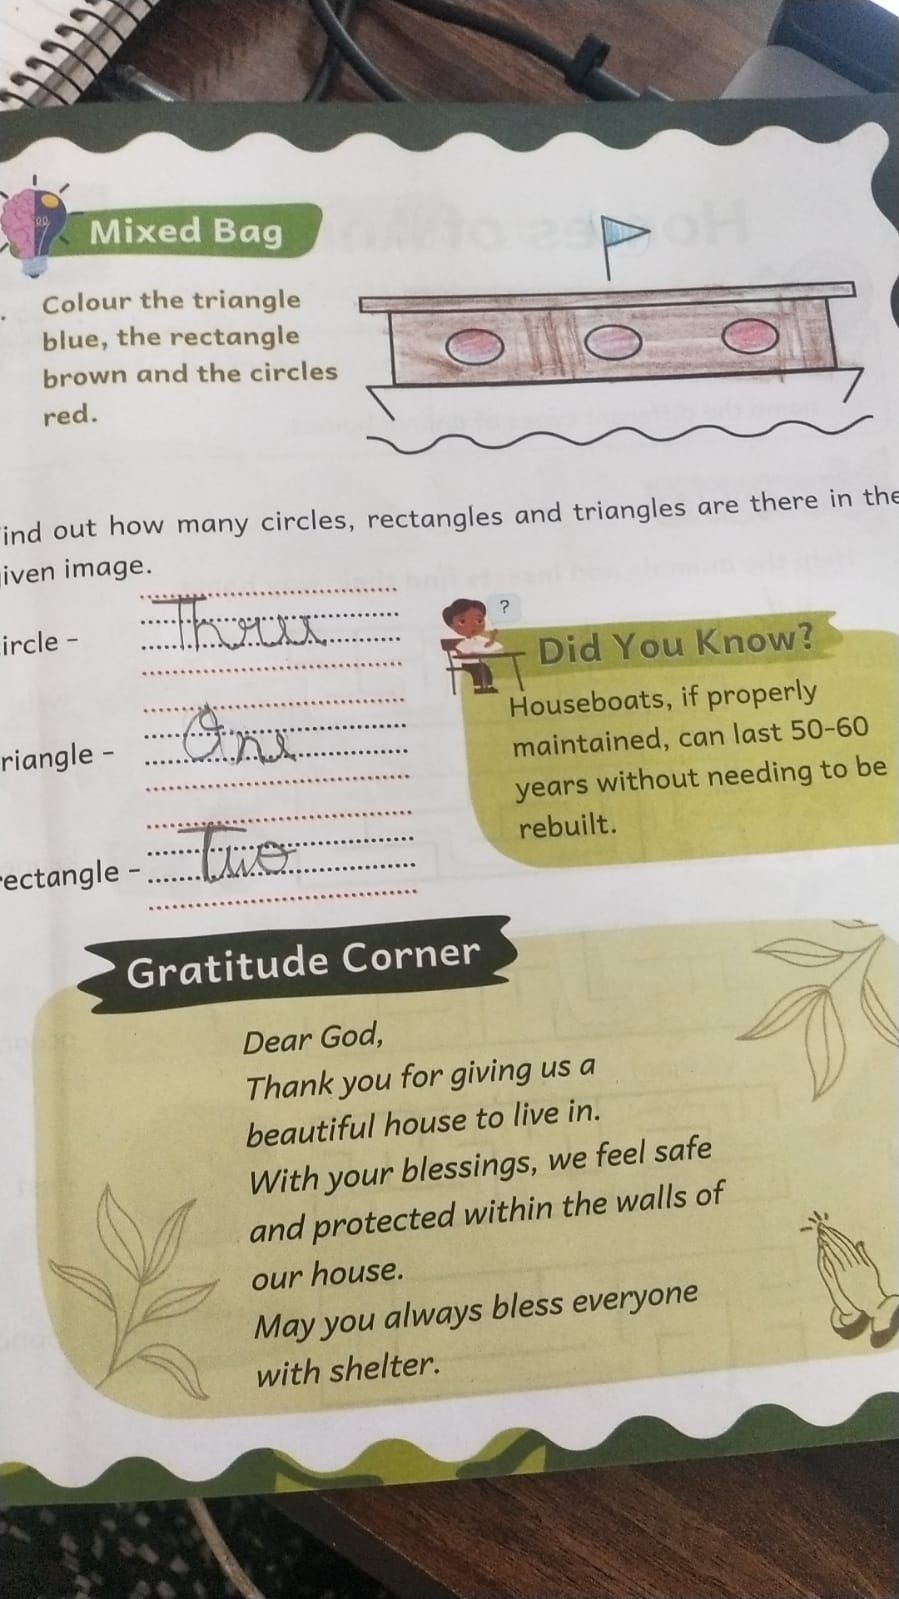 Mixed Bag
Colour the triangle
blue, the rectangle
brown and the circles
red.
ind out how many circles, rectangles and triangles are there in the
iven image.
ircle - Three
riangle - One
rectangle - Two
?
Did You Know?
Houseboats, if properly
maintained, can last 50-60
years without needing to be
rebuilt.
Gratitude Corner
Dear God,
Thank you for giving us a
beautiful house to live in.
With your blessings, we feel safe
and protected within the walls of
our house.
May you always bless everyone
with shelter.